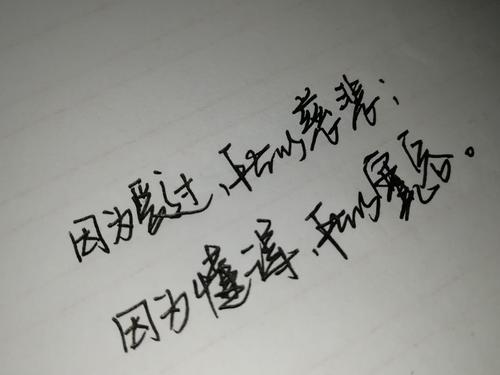 因为爱过，所以慈悲；
因为懂得，所以宽容。